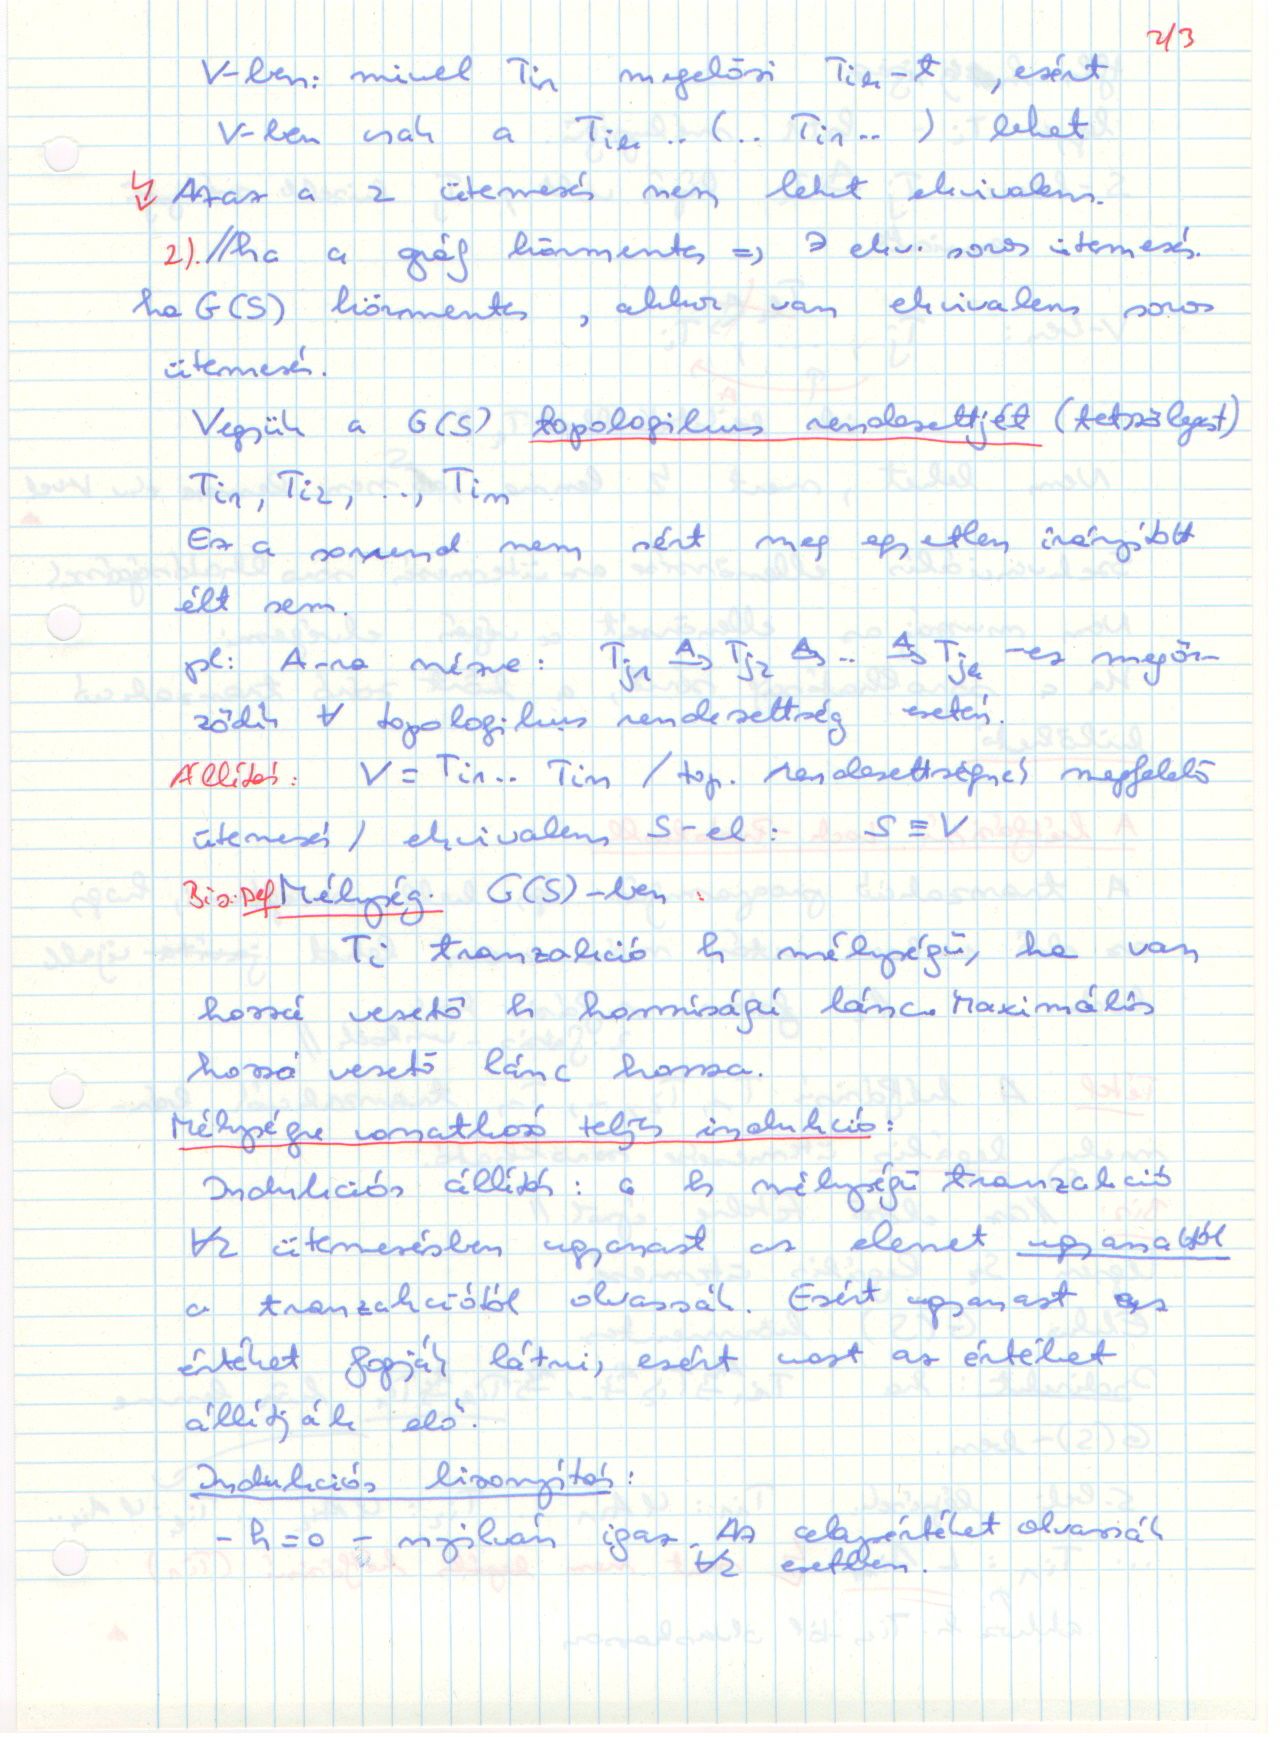 2/3
V-ben: mivel Ti1 megelőzi Tik-t, ezért
V-ben csak a Tik..(.. Ti1..) lehet
↯ Azaz a 2 ütemezés nem lehet ekvivalens.
2). //ha a gráf körmentes => ∃ ekv. soros ütemezés.
ha G(S) körmentes, akkor van ekvivalens soros
ütemezés.
Vegyük a G(S) topologikus rendezettjét (tetszőlegest)
Ti1, Ti2, .., Tin
Ez a sorrend nem sért meg egyetlen irányított
élt sem.
pl: A-ra nézve: Tj1 A→ Tj2 A→ .. A→ Tjk -ez megőr-
ződik ∀ topologikus rendezettség esetén.
Állítás: V = Ti1.. Tin / top. rendezettségnek megfelelő
ütemezés / ekvivalens S-el: S ≡ V
Biz: Def Mélység. G(S)-ben:
Ti tranzakció h mélységű, ha van
hozzá vezető h hosszúságú lánc. Maximális
hozzá vezető lánc hossza.
Mélységre vonatkozó teljes indukció:
Indukciós állítás: a h mélységű tranzakció
∀2 ütemezésben ugyanazt az elemet ugyanattól
a tranzakciótól olvassák. Ezért ugyanazt az
értéket fogják látni, ezért azt az értéket
állítják elő.
Indukciós bizonyítás:
- h=0 - nyilván igaz. Az alapértéket olvassák
∀2 esetben.